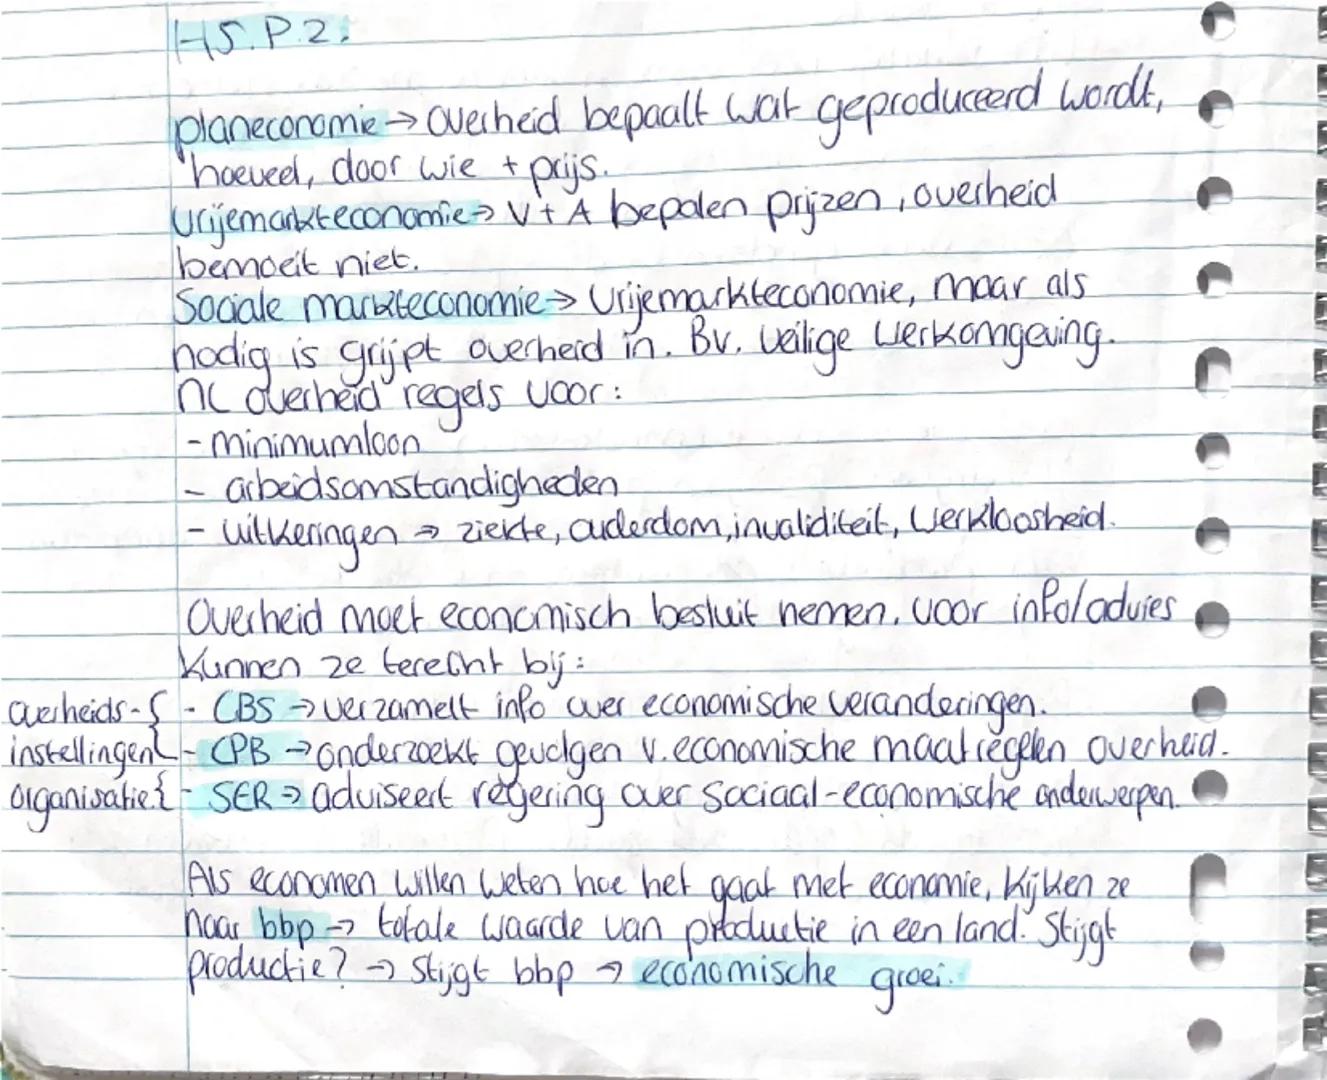 H5.P.2.
planeconomie → overheid bepaalt wat geproduceerd wordt,
hoeveel, door wie + prijs.
vrijemarkteconomie → V + A bepalen prijzen, overheid
bemoeit niet.
Sociale markteconomie → vrijemarkteconomie, maar als
nodig is grijpt overheid in. Bv. veilige werkomgeving.
NL overheid regels voor:
- minimumloon
- arbeidsomstandigheden
- uitkeringen → ziekte, ouderdom, invaliditeit, werkloosheid.
Overheid moet economisch besluit nemen. voor info/advies
kunnen ze terecht bij:
overheids- { - CBS → verzamelt info over economische veranderingen.
instellingen { - CPB → onderzoekt gevolgen v. economische maatregelen overheid.
organisatie { - SER → adviseert regering over sociaal-economische onderwerpen.
Als economen willen weten hoe het gaat met economie, kijken ze
naar bbp → totale waarde van productie in een land. Stijgt
productie? → stijgt bbp → economische groei.